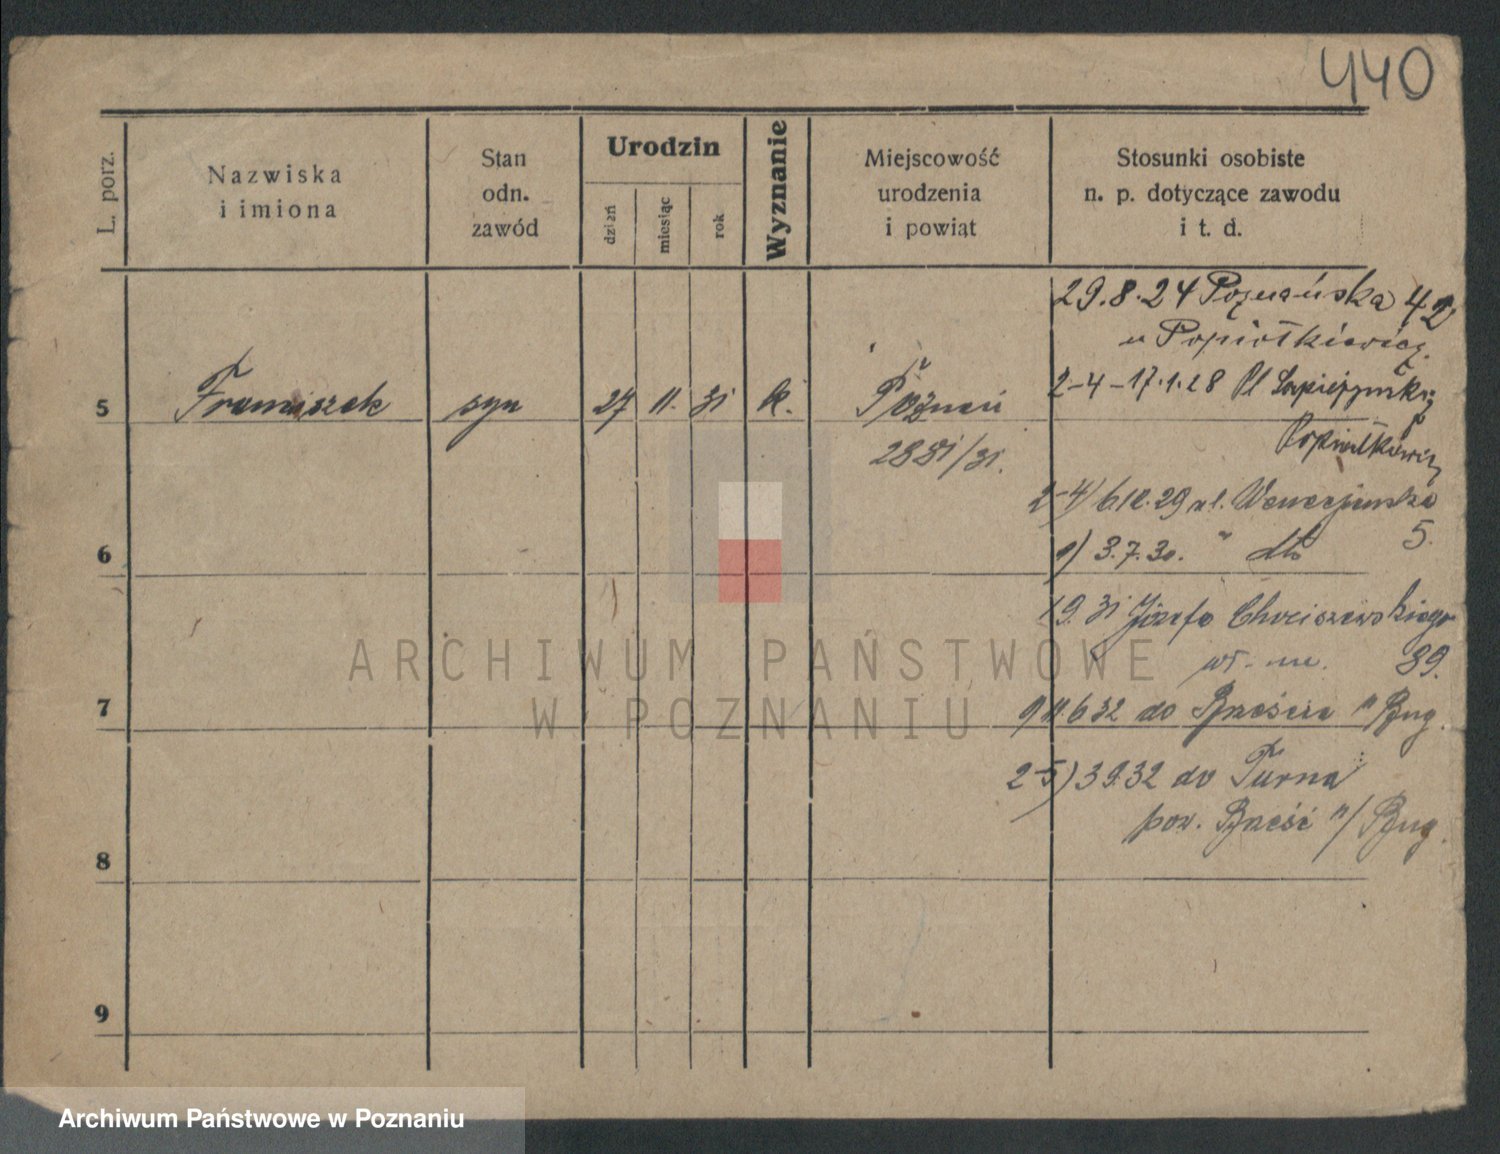 440
L. porz.
Nazwiska
i imiona
Stan
odn.
zawód
Urodzin
dzień
miesiąc
rok
Wyznanie
Miejscowość
urodzenia
i powiąt
Stosunki osobiste
n. p. dotyczące zawodu
i t. d.
29.8.24 Poznańska 42
u Popiołkiewicz.
5 Franciszek syn 27 11. 31 k. Poznań
2-4-17.1.28 Pl Sapieżyński
Popiołkiewicz
2881/31.
2-4) 29 ul. Wenecjańska
5.
6
1) 3.7.30. " dto
1 9. 31 Józefa Chociszewskiego
89.
7
6 32 do Brześcia n/Bug.
2-5) 3 9.32 do Turna
pow. Brześć n/Bug.
8
9
ARCHIWUM PAŃSTWOWE
W POZNANIU
Archiwum Państwowe w Poznaniu